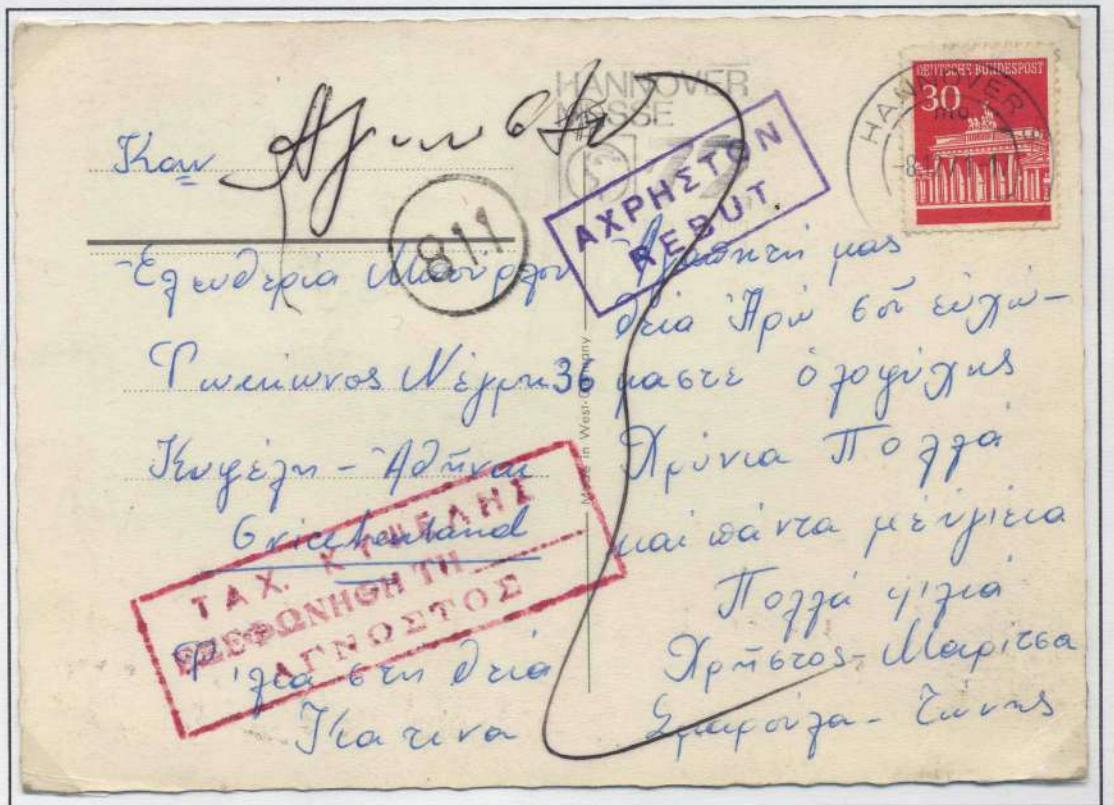 HANNOVER
MESSE
HANNOVER
DEUTSCHE BUNDESPOST
30
ΑΧΡΗΣΤΟΝ
REBUT
811
Καν
Ἐλευθερία
Φωκίωνος Νέγρη 36
Κυψέλη - Ἀθῆναι
Griechenland
ΤΑΧ. ΚΥΨΕΛΗΣ
ΕΞΕΦΩΝΗΘΗ ΤΗ
ΑΓΝΩΣΤΟΣ
Φιλιά στη θεία
Κατινα
Made in West-Germany
Ἀγαπητή μας
θεία Ἠρώ σοῦ εὐχώ-
μαστε ὁλοψύχης
Χρόνια Πολλά
και πάντα μέ ὑγιεια
Πολλά φιλιά
Χρῆστος - Μαρίτσα
Σμαρούλα -